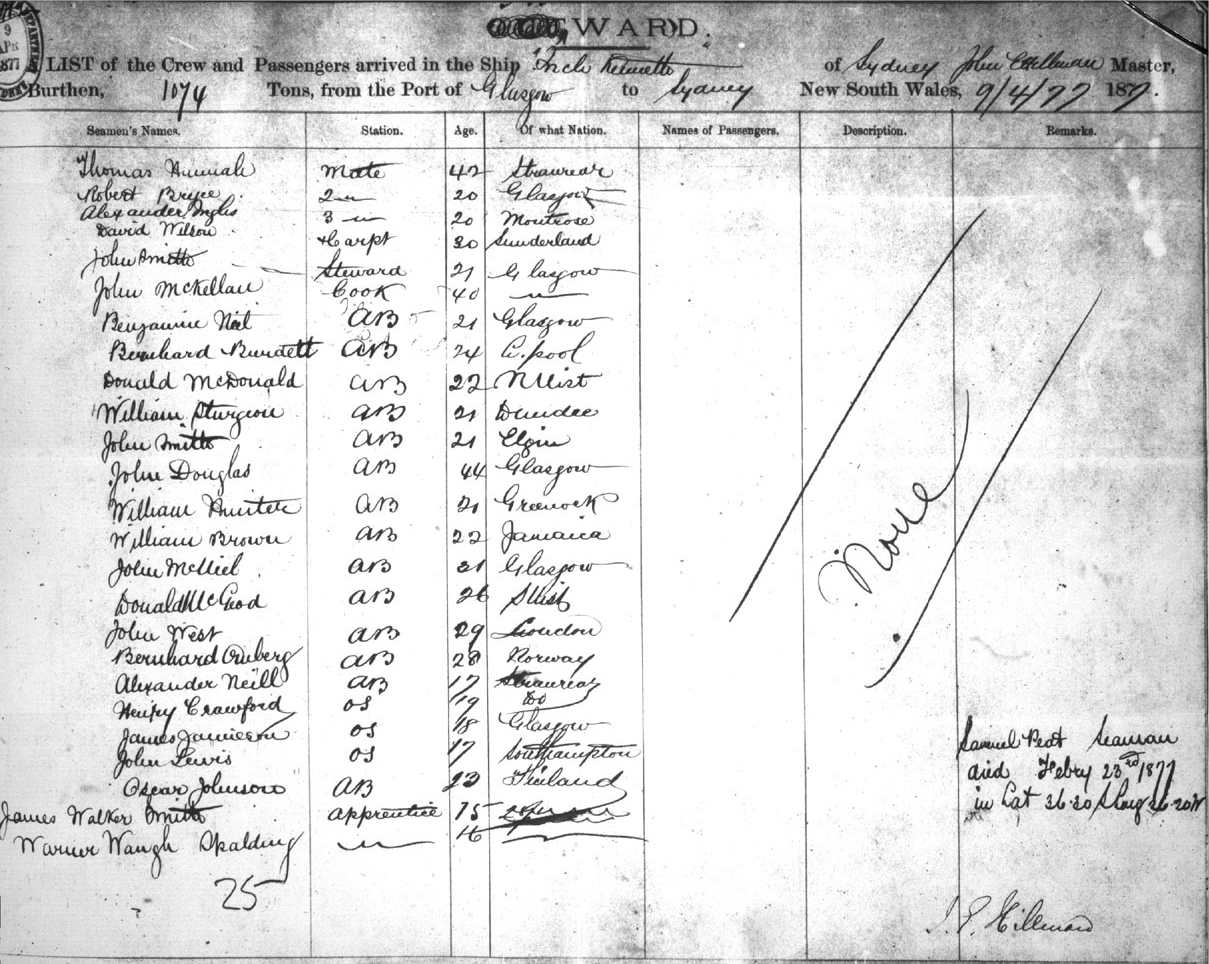 9
APR
1877
WARD.
LIST of the Crew and Passengers arrived in the Ship Inch Kenneth of Sydney John Master,
Burthen, 1074 Tons, from the Port of Glasgow to Sydney New South Wales, 9/4/77 1877.
Seamen's Names. Station. Age. Of what Nation. Names of Passengers. Description. Remarks.
Thomas Hannah Mate 42 Stranrear
Robert Bryce 2 " 20 Glasgow
Alexander Inglis 3 " 20 Montrose
David Wilson Carpt 30 Sunderland
John Smith Steward 21 Glasgow
John McKellar Cook 40 "
Benjamine AB 21 Glasgow
Bernhard Burdett AB 24 L.pool
Donald McDonald AB 22 N Uist
William Sturgeon AB 21 Dundee
John Smith AB 21 Elgin
John Douglas AB 44 Glasgow
William AB 21 Greenock
William Brown AB 22 Jamaica
John McNiel AB 21 Glasgow
Donald McLeod AB 26 S Uist
John West AB 29 London
Bernhard AB 28 Norway
Alexander Neill AB 17 Stranrear
Henry Crawford OS 19 Do
James Jamieson OS 18 Glasgow
John Lewis OS 17 Southampton
Oscar Johnson AB 23 Finland
James Walker Smith Apprentice 15
Warner Waugh Spalding " 16
25
None
Samuel Peat Seaman
died Febry 23rd 1877
in Lat 36.30 S Long 26.20W